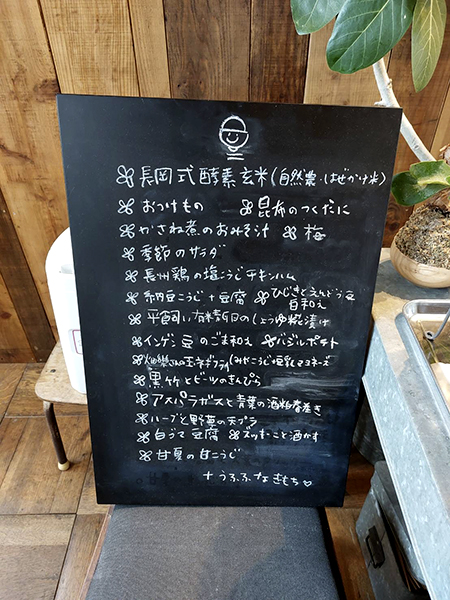 長岡式酵素玄米(自然農・はぜかけ米)
おつけもの 昆布のつくだに
かさね煮のおみそ汁 梅
季節のサラダ
長州鶏の塩こうじチキンハム
納豆こうじ+豆腐 ひじきとえんどう豆白和え
平飼い有精卵のしょうゆ粕漬け
インゲン豆のごま和え バジルポテト
さんの玉ネギフライ(みやこうじ豆乳マヨネーズ
黒竹とビーツのきんぴら
アスパラガスと青菜の酒粕春巻き
ハーブと野草の天プラ
白ごま豆腐 ズッキーニ酒かす
甘夏の甘こうじ
+うふふなきもち♡